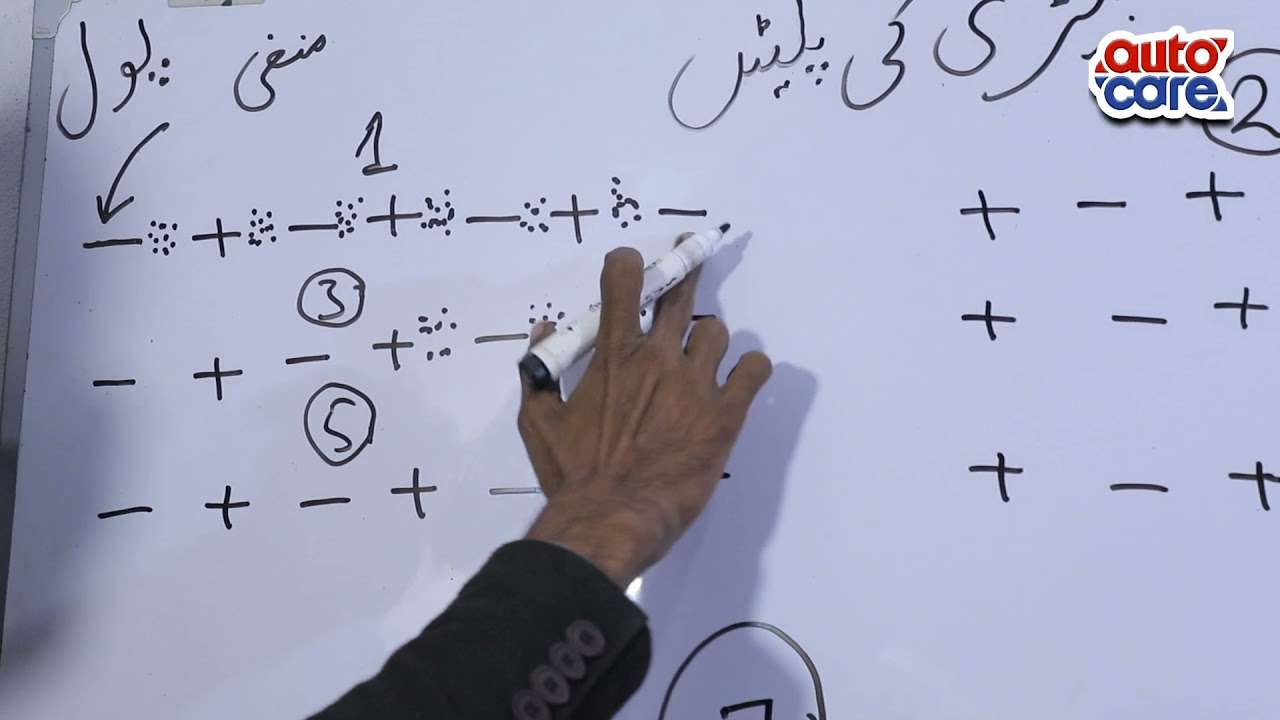 منفی پول
کی پلیٹس
auto
care
2
1
− + − + − + −
+ − +
3
− + − + −
+ − +
5
− + − + −
+ − +
7